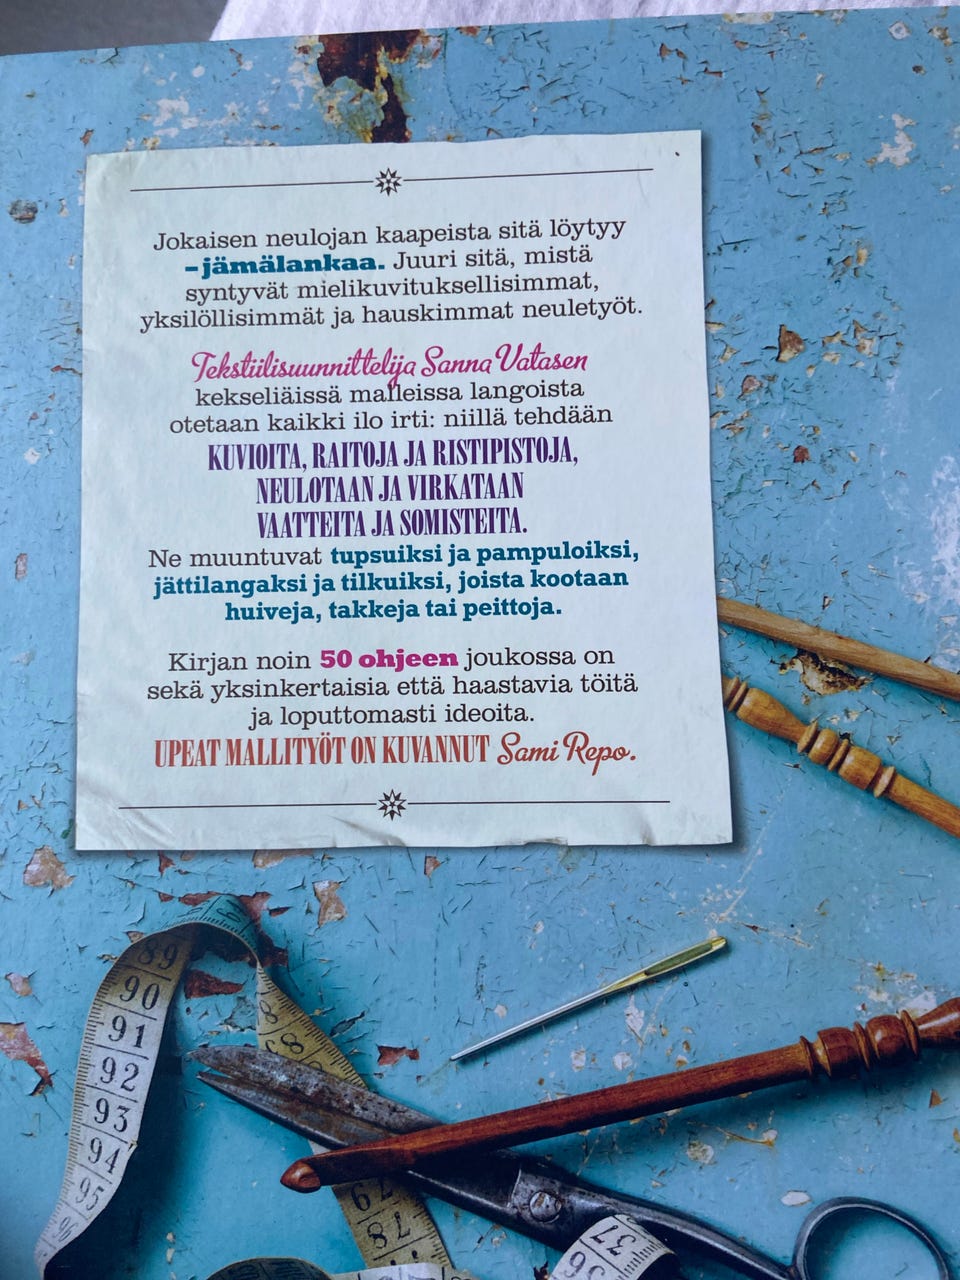 Jokaisen neulojan kaapeista sitä löytyy
– jämälankaa. Juuri sitä, mistä
syntyvät mielikuvituksellisimmat,
yksilöllisimmät ja hauskimmat neuletyöt.
Tekstiilisuunnittelija Sanna Vatasen
kekseliäissä malleissa langoista
otetaan kaikki ilo irti: niillä tehdään
KUVIOITA, RAITOJA JA RISTIPISTOJA,
NEULOTAAN JA VIRKATAAN
VAATTEITA JA SOMISTEITA.
Ne muuntuvat tupsuiksi ja pampuloiksi,
jättilangaksi ja tilkuiksi, joista kootaan
huiveja, takkeja tai peittoja.
Kirjan noin 50 ohjeen joukossa on
sekä yksinkertaisia että haastavia töitä
ja loputtomasti ideoita.
UPEAT MALLITYÖT ON KUVANNUT Sami Repo.
89
90
91
92
93
94
95
96
8
8
79
78
37
36